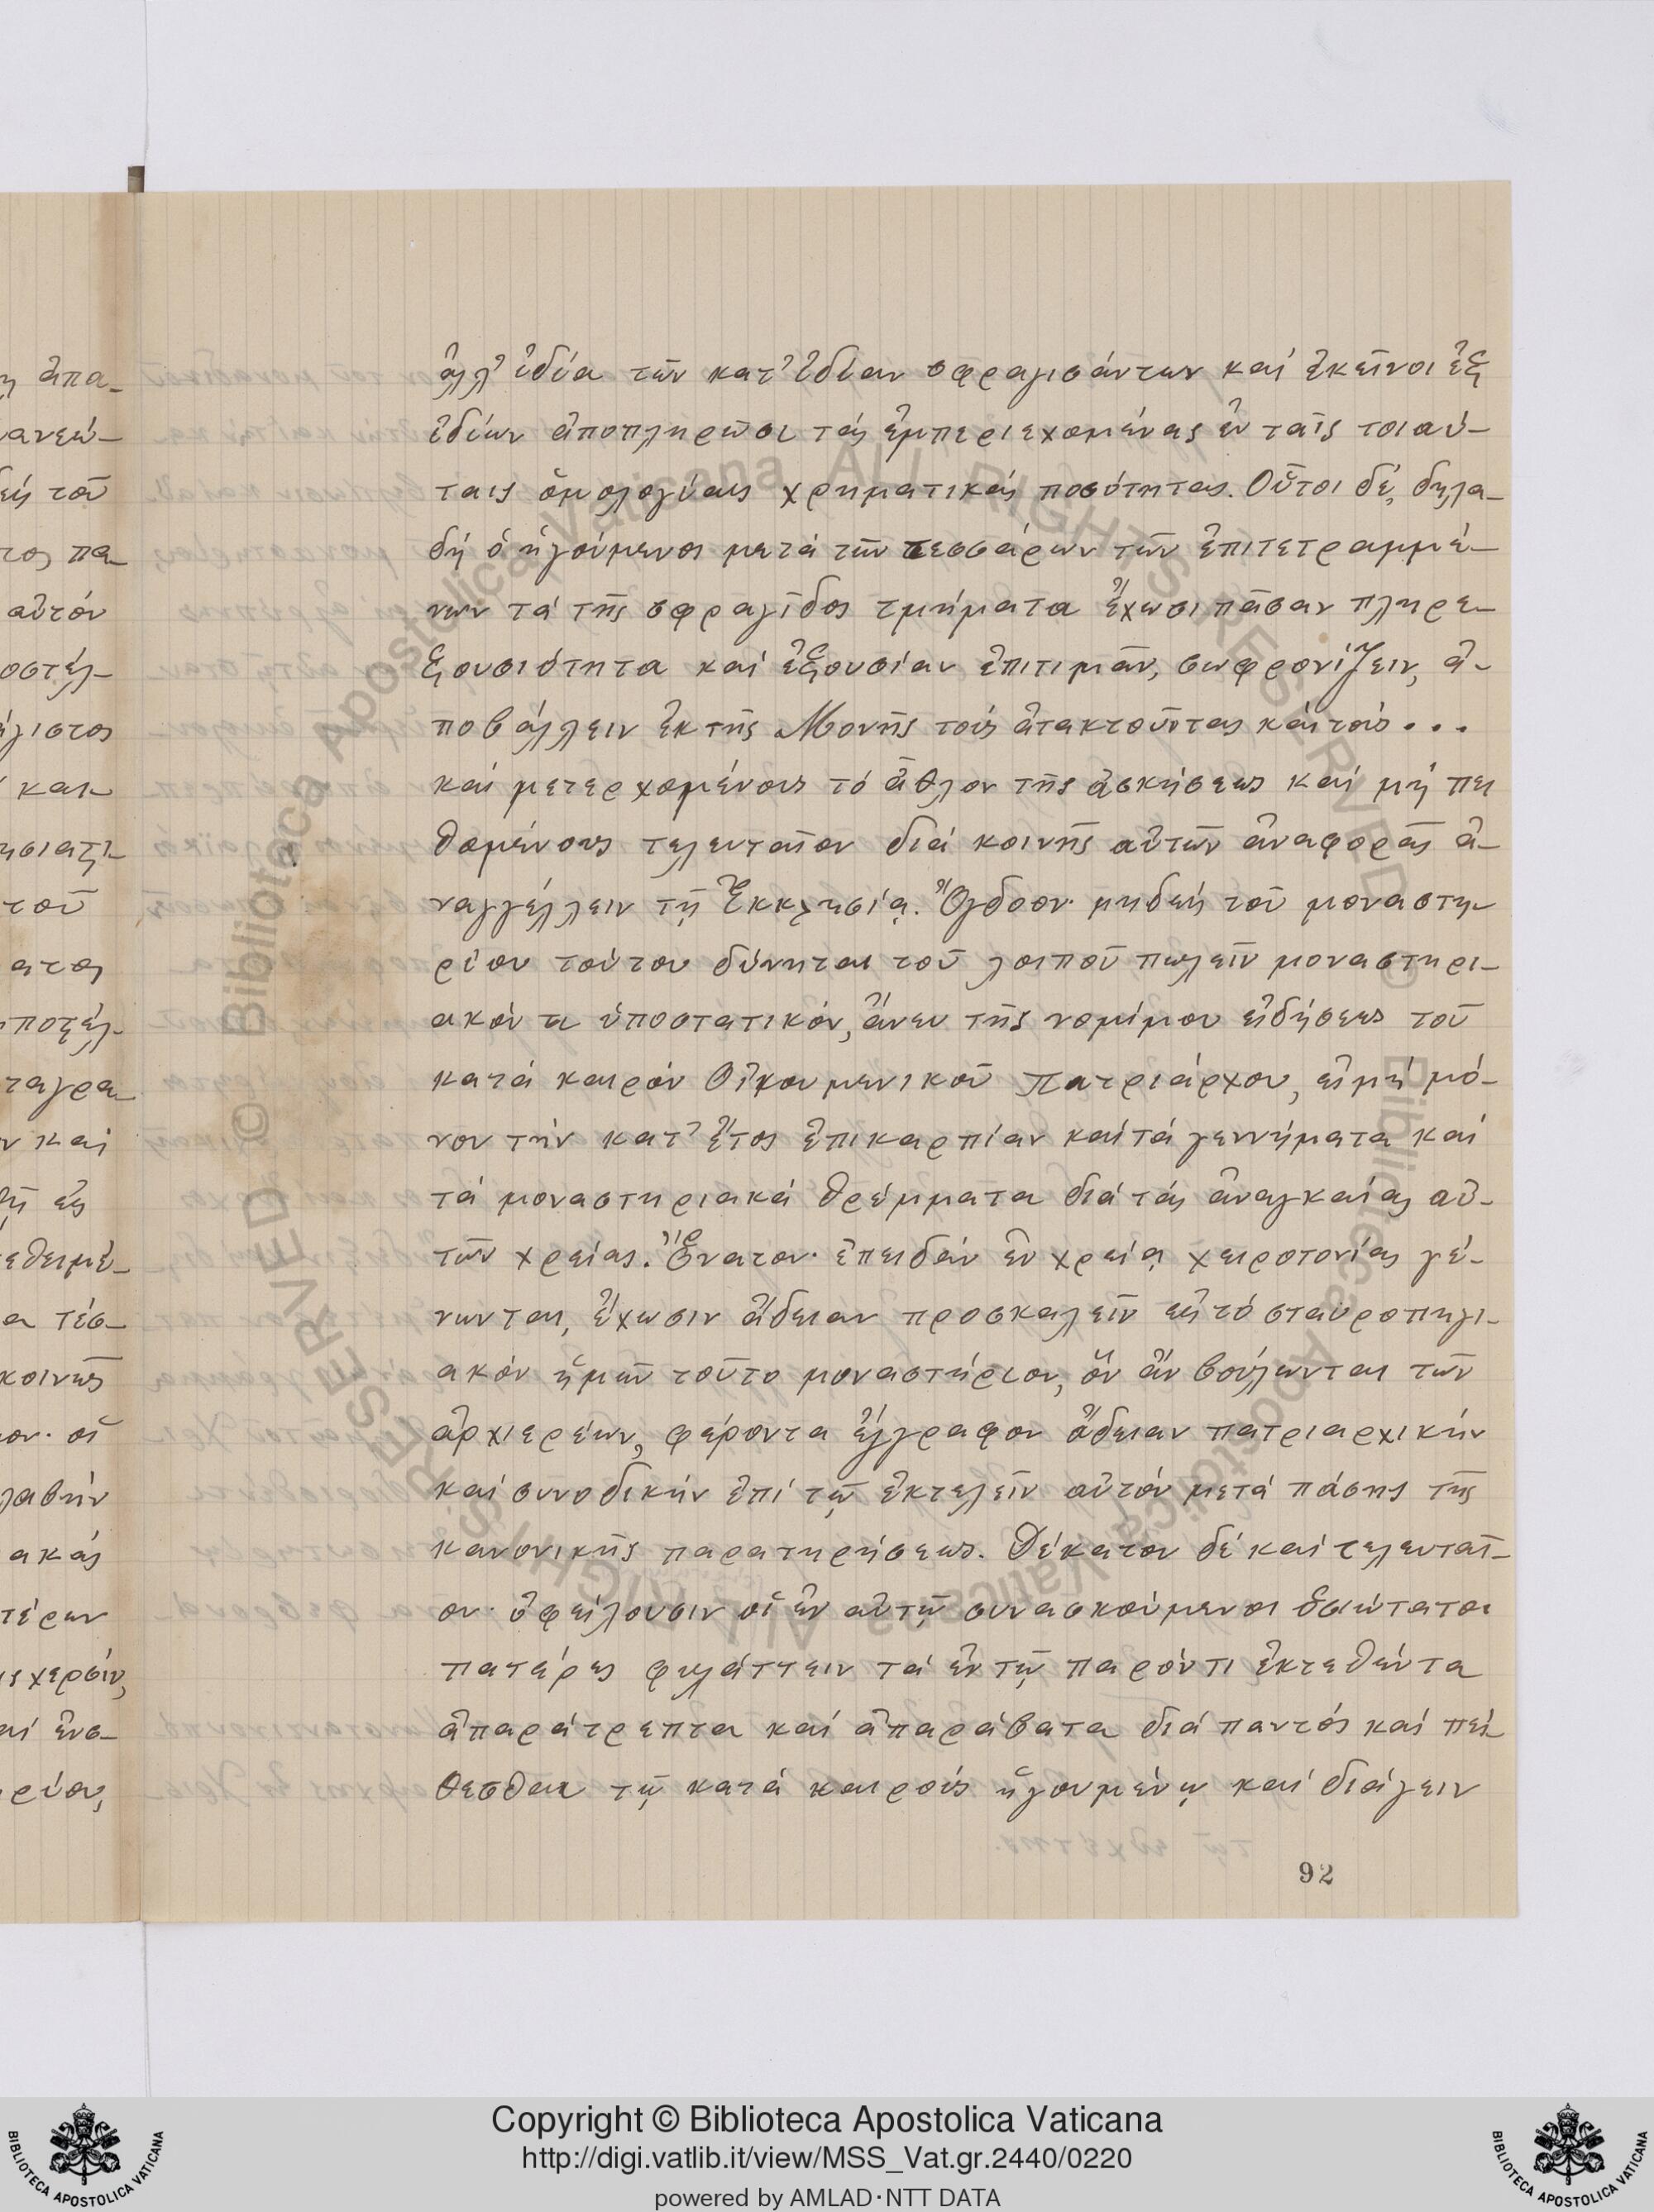 ἀλλ' ἰδίᾳ τῶν κατ' ἰδίαν σφραγισάντων καὶ ἐκεῖνοι ἐξ
ἰδίων ἀποπληρῶσι τὰς ἐμπεριεχομένας ἐν ταῖς τοιαύ-
ταις ὁμολογίαις χρηματικὰς ποσότητας. Οὗτοι δέ, δηλα-
δὴ ὁ ἡγούμενος μετὰ τῶν τεσσάρων τῶν ἐπιτετραμμέ-
νων τὰ τῆς σφραγῖδος τμήματα ἔχωσι πᾶσαν πληρε-
ξουσιότητα καὶ ἐξουσίαν ἐπιτιμᾶν, σωφρονίζειν, ἀ-
ποβάλλειν ἐκ τῆς Μονῆς τοὺς ἀτακτοῦντας καὶ τοὺς...
καὶ μετερχομένους τὸ ἆθλον τῆς ἀσκήσεως καὶ μὴ πει
θομένους τελευταῖον διὰ κοινῆς αὐτῶν ἀναφορᾶς ἀ-
ναγγέλλειν τῇ Ἐκκλησίᾳ. Ὄγδοον· μηδεὶς τοῦ μοναστη-
ρίου τούτου δύνηται τοῦ λοιποῦ πωλεῖν μοναστηρι-
ακόν τι ὑποστατικόν, ἄνευ τῆς νομίμου εἰδήσεως τοῦ
κατὰ καιρὸν Οἰκουμενικοῦ Πατριάρχου, εἰμὴ μό-
νον τὴν κατ' ἔτος ἐπικαρπίαν καὶ τὰ γεννήματα καὶ
τὰ μοναστηριακὰ θρέμματα διὰ τὰς ἀναγκαίας αὐ-
τῶν χρείας. Ἔνατον· ἐπειδὰν ἐν χρείᾳ χειροτονίας γέ-
νωνται, ἔχωσιν ἄδειαν προσκαλεῖν εἰς τὸ σταυροπηγι-
ακὸν ἡμῶν τοῦτο μοναστήριον, ὃν ἂν βούλωνται τῶν
ἀρχιερέων, φέροντα ἔγγραφον ἄδειαν πατριαρχικὴν
καὶ συνοδικὴν ἐπὶ τῷ ἐκτελεῖν αὐτὸν μετὰ πάσης τῆς
κανονικῆς παρατηρήσεως. Δέκατον δὲ καὶ τελευταῖ-
ον· ὀφείλουσιν οἱ ἐν αὐτῷ συνασκούμενοι ὁσιώτατοι
πατέρες φυλάττειν τὰ ἐν τῷ παρόντι ἐκτεθέντα
ἀπαράτρεπτα καὶ ἀπαράβατα διὰ παντὸς καὶ πεί-
θεσθαι τῷ κατὰ καιροὺς ἡγουμένῳ καὶ διάγειν
92
Copyright © Biblioteca Apostolica Vaticana
http://digi.vatlib.it/view/MSS_Vat.gr.2440/0220
powered by AMLAD·NTT DATA